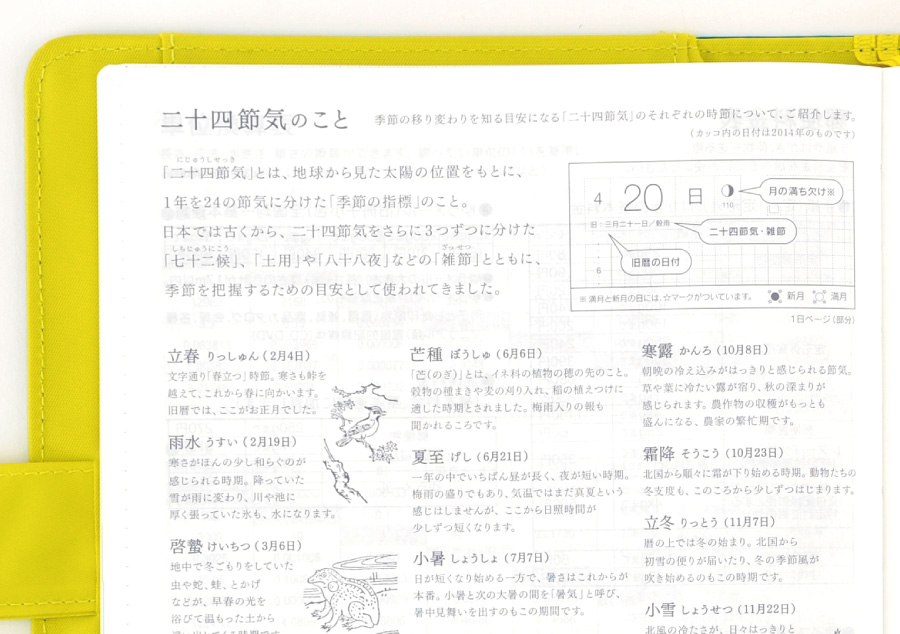 二十四節気のこと
季節の移り変わりを知る目安になる「二十四節気」のそれぞれの時節について、ご紹介します。
(カッコ内の日付は2014年のものです)
にじゅうしせっき
「二十四節気」とは、地球から見た太陽の位置をもとに、
1年を24の節気に分けた「季節の指標」のこと。
日本では古くから、二十四節気をさらに3つずつに分けた
しちじゅうにこう ざっせつ
「七十二候」、「土用」や「八十八夜」などの「雑節」とともに、
季節を把握するための目安として使われてきました。
4 20 日
110
旧:三月二十一日/穀雨
6
月の満ち欠け※
二十四節気・雑節
旧暦の日付
※満月と新月の日には、☆マークがついています。 新月 満月
1日ページ(部分)
立春 りっしゅん(2月4日)
文字通り「春立つ」時節。寒さも峠を
越えて、これから春に向かいます。
旧暦では、ここがお正月でした。
雨水 うすい(2月19日)
寒さがほんの少し和らぐのが
感じられる時期。降っていた
雪が雨に変わり、川や池に
厚く張っていた氷も、水になります。
啓蟄 けいちつ(3月6日)
地中で冬ごもりをしていた
虫や蛇、蛙、とかげ
などが、早春の光を
浴びて温もった土から
芒種 ぼうしゅ(6月6日)
「芒(のぎ)」とは、イネ科の植物の穂の先のこと。
穀物の種まきや麦の刈り入れ、稲の植えつけに
適した時期とされました。梅雨入りの報も
聞かれるころです。
夏至 げし(6月21日)
一年の中でいちばん昼が長く、夜が短い時期。
梅雨の盛りでもあり、気温ではまだ真夏という
感じはしませんが、ここから日照時間が
少しずつ短くなります。
小暑 しょうしょ(7月7日)
日が短くなり始める一方で、暑さはこれからが
本番。小暑と次の大暑の間を「暑気」と呼び、
暑中見舞いを出すのもこの期間です。
寒露 かんろ(10月8日)
朝晩の冷え込みがはっきりと感じられる節気。
草や葉に冷たい露が宿り、秋の深まりが
感じられます。農作物の収穫がもっとも
盛んになる、農家の繁忙期です。
霜降 そうこう(10月23日)
北国から順々に霜が下り始める時期。動物たちの
冬支度も、このころから少しずつはじまります。
立冬 りっとう(11月7日)
暦の上では冬の始まり。北国から
初雪の便りが届いたり、冬の季節風が
吹き始めるのもこの時期です。
小雪 しょうせつ(11月22日)
北風の冷たさが、日々はっきりと